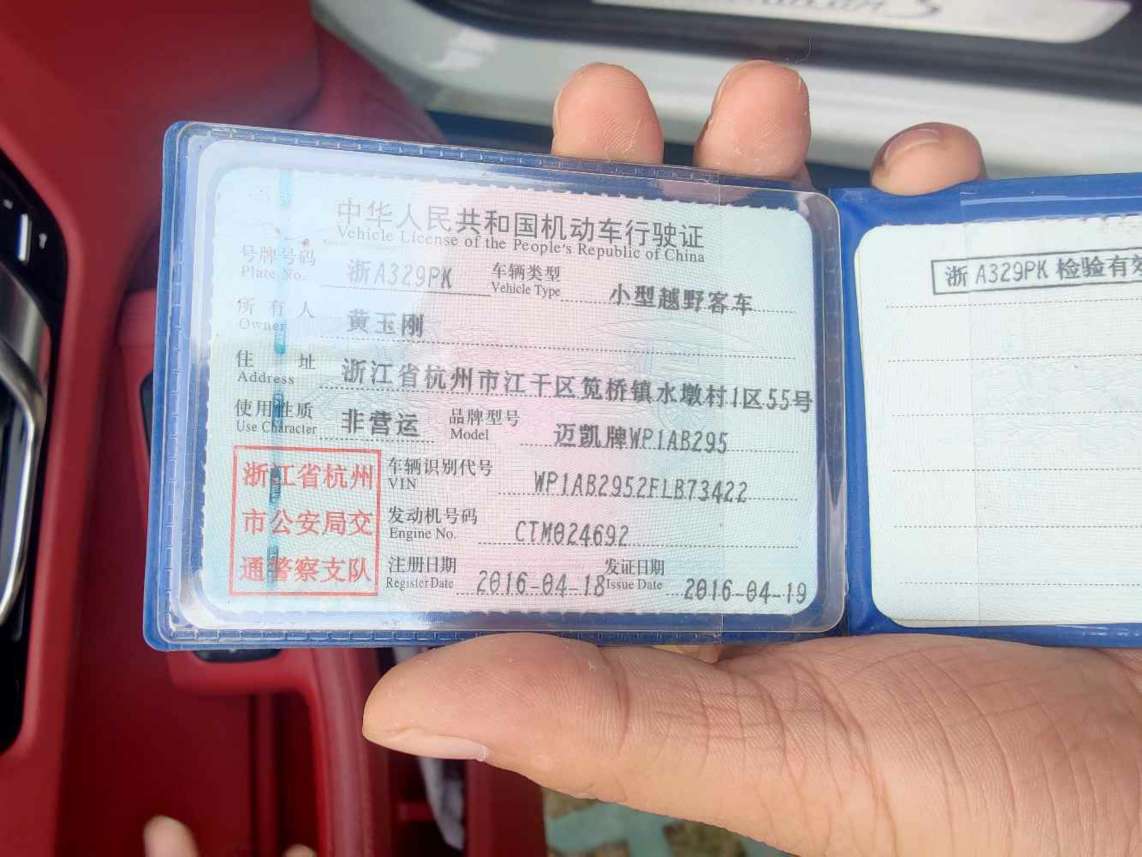 中华人民共和国机动车行驶证
Vehicle License of the People's Republic of China
号牌号码 浙A329PK 车辆类型 小型越野客车
Plate No. Vehicle Type
所有人 黄玉刚
Owner
住址 浙江省杭州市江干区笕桥镇水墩村1区55号
Address
使用性质 非营运 品牌型号 迈凯牌WP1AB295
Use Character Model
浙江省杭州
市公安局交
通警察支队
车辆识别代号 WP1AB2952FLB73422
VIN
发动机号码 CTM024692
Engine No.
注册日期 2016-04-18 发证日期 2016-04-19
Register Date Issue Date
浙A329PK 检验有